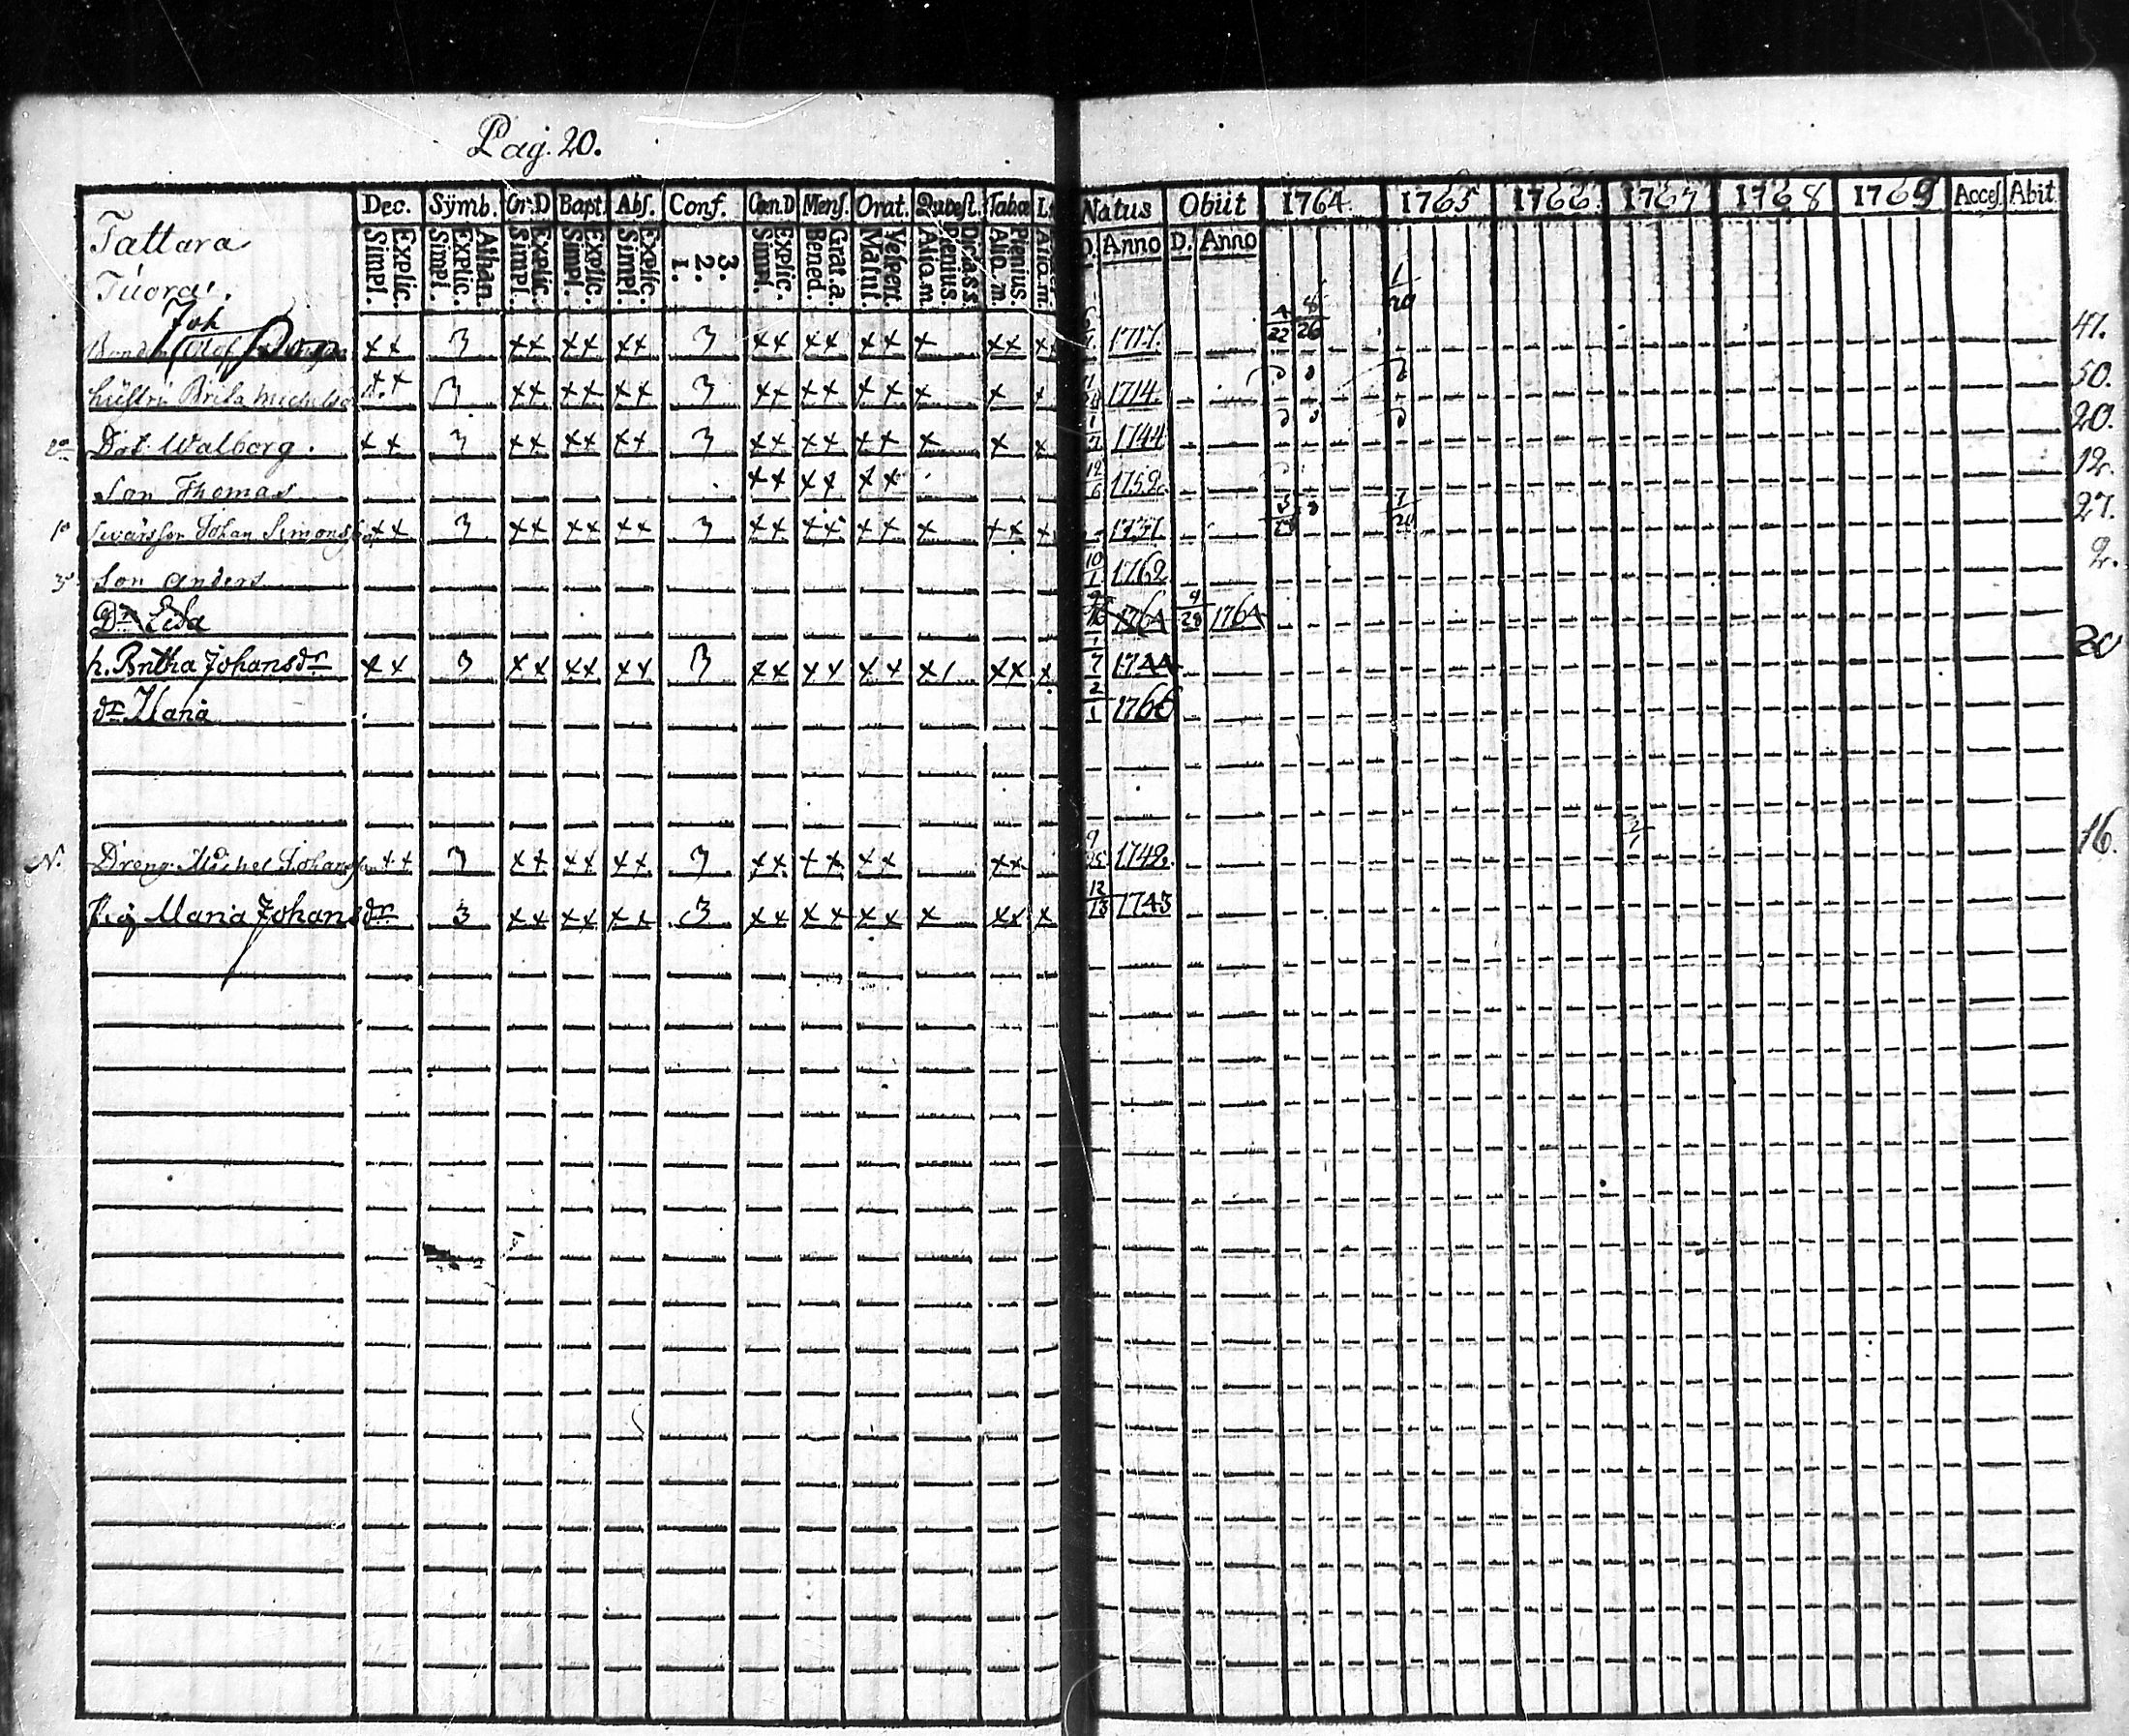 Pag. 20.
Dec. Sÿmb. Or.D Bapt. Abs. Conf. Cœn.D Mens. Orat. Quæst. Tabæ Natus Obiit 1764. 1765 1766. 1767 1768 1769 Acces. Abit
Tattara
Tuora.
Explic. Simpl. Athan. Explic. Simpl. Explic. Simpl. Explic. Simpl. Explic. Simpl. 3. 2. 1. Explic. Simpl. Grat.a. Bened. Vespert. Matut. Plenius Aliq.m. Plenius Aliq.m. D. Anno D. Anno
Joh
Bond Olof xx 3 xx xx xx 3 xx xx xx x xx x 1717. 4/22 8/26 1/20 47.
hustru Brita Michelsd xx 3 xx xx xx 3 xx xx xx x x x 1714. 50.
2o Dot. Walborg. xx 3 xx xx xx 3 xx xx xx x x x 1744 20.
Son Thomas xx xx xx 12/6 1752. 12.
1o Swärson Johan Simonss xx 3 xx xx xx 3 xx xx xx x xx x 1737. 27.
3o Son Anders 10/1 1762 2.
Dr. Lisa 1764 9/28 1764
h. Britha Johansdr xx 3 xx xx xx 3 xx xx xx x xx x 1744 20
dr Maria 2/1 1766
N. Dreng Michel Johansson xx 3 xx xx xx 3 xx xx xx xx 9/25 1748. 2/7 16.
Pig Maria Johansdr 3 xx xx xx 3 xx xx xx x xx x 12/13 1743